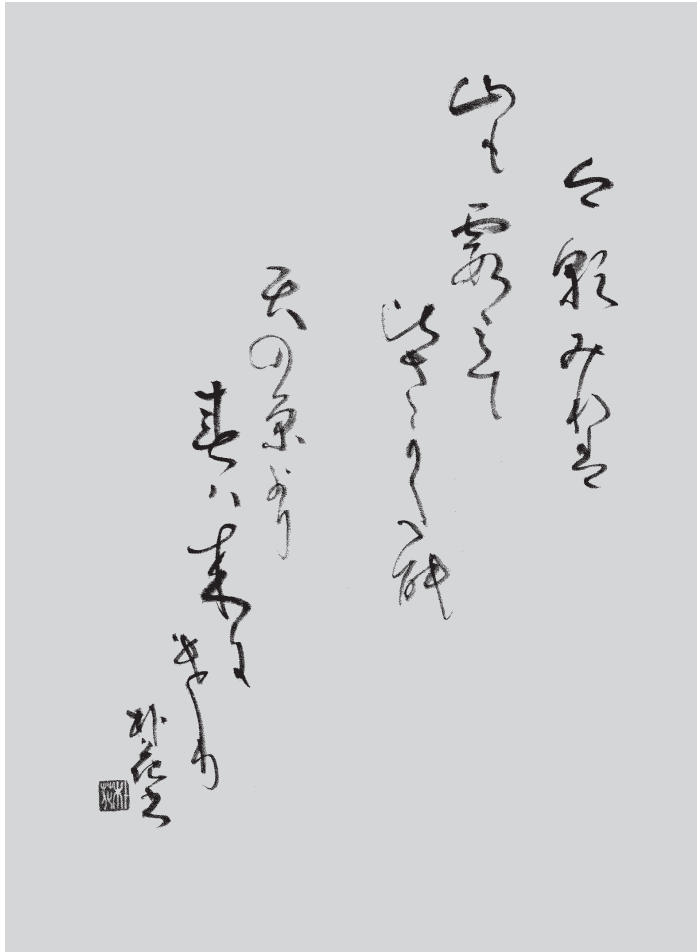 今朝みれは
山も霞みて
ひさかたの
天の原より
春ハ来に
けり